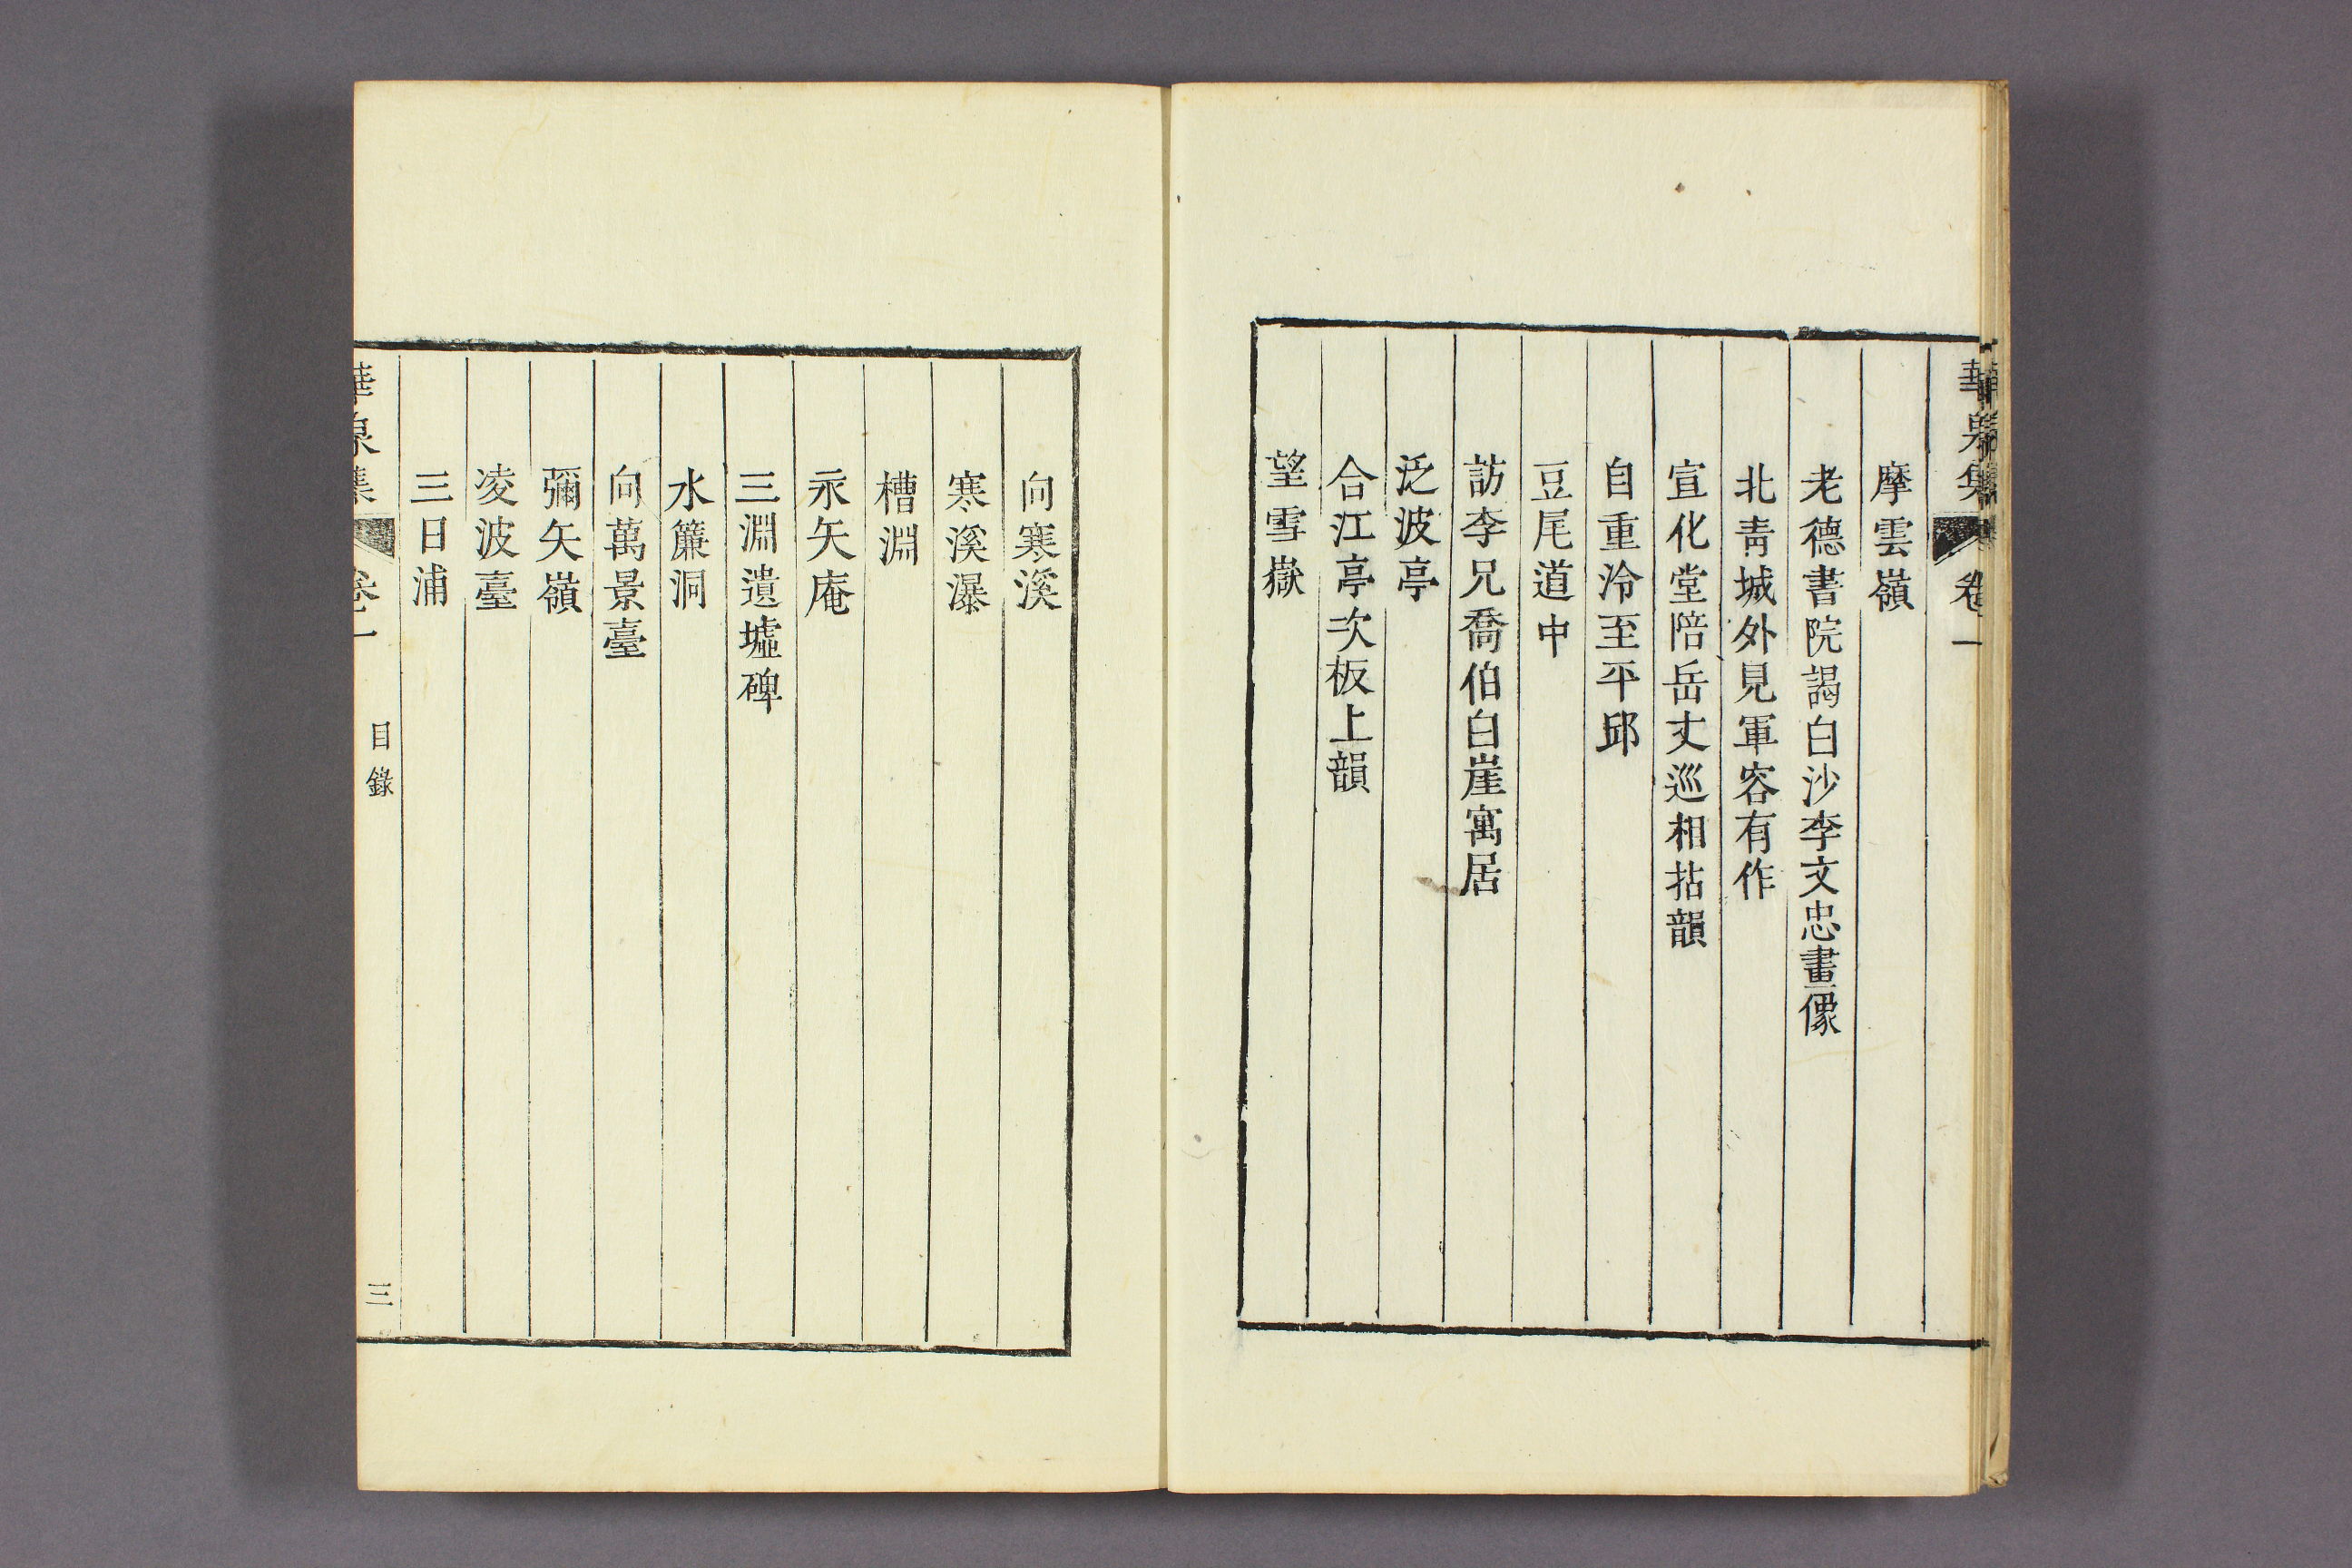 華泉集 卷一
摩雲嶺
老德書院謁白沙李文忠畫像
北靑城外見軍容有作
宣化堂陪岳丈巡相拈韻
自重泠至平邱
豆尾道中
訪李兄喬伯白崖寓居
泛波亭
合江亭次板上韻
望雪嶽
向寒溪
寒溪瀑
槽淵
永矢庵
三淵遺墟碑
水簾洞
向萬景臺
彌矢嶺
凌波臺
三日浦
華泉集 卷一 目錄 三